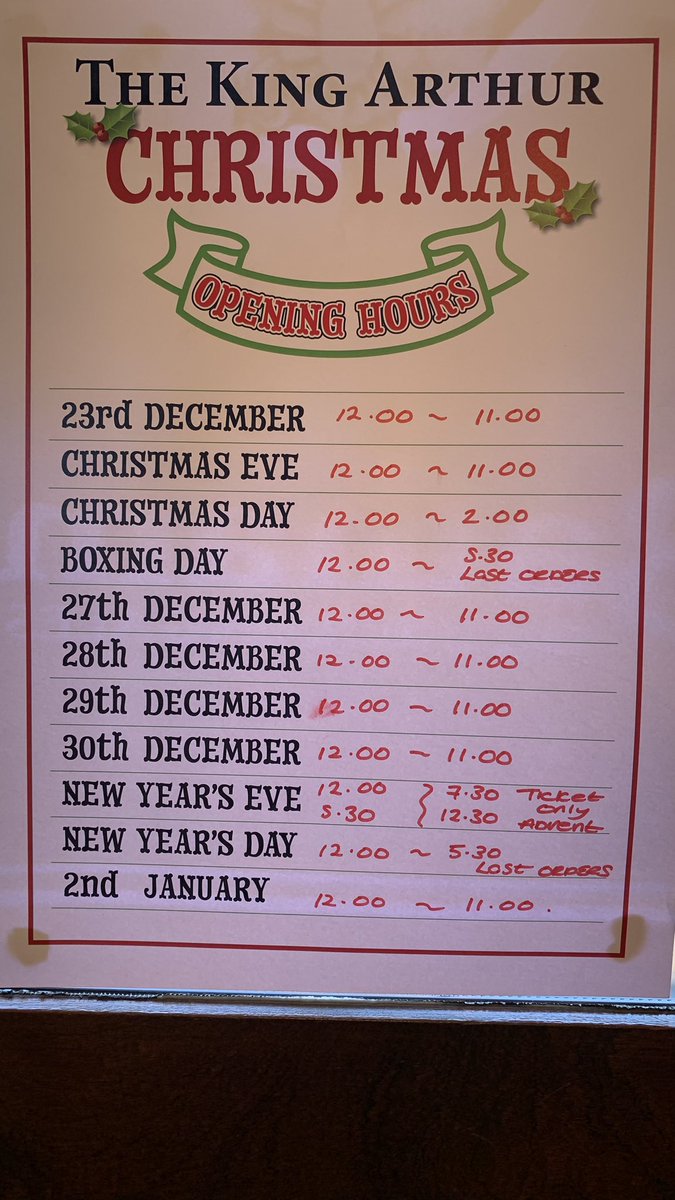 THE KING ARTHUR
CHRISTMAS
OPENING HOURS
23rd DECEMBER 12.00 ~ 11.00
CHRISTMAS EVE 12.00 ~ 11.00
CHRISTMAS DAY 12.00 ~ 2.00
BOXING DAY 12.00 ~ 5.30
LAST ORDERS
27th DECEMBER 12.00 ~ 11.00
28th DECEMBER 12.00 ~ 11.00
29th DECEMBER 12.00 ~ 11.00
30th DECEMBER 12.00 ~ 11.00
NEW YEAR'S EVE 12.00 } 7.30 TICKET
5.30 12.30 ONLY
ADVENT
NEW YEAR'S DAY 12.00 ~ 5.30
LAST ORDERS
2nd JANUARY 12.00 ~ 11.00.